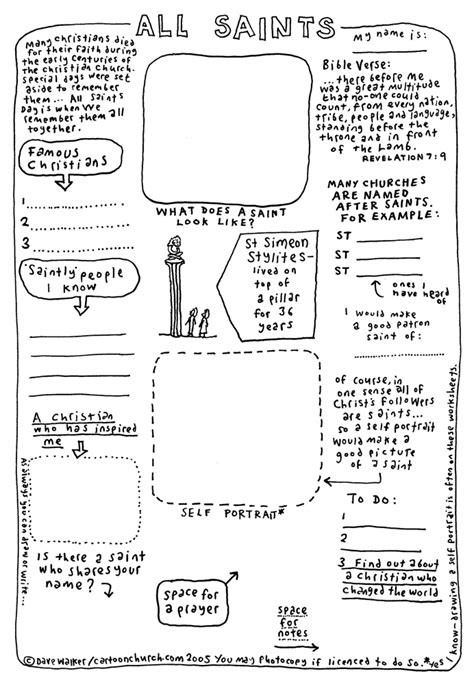 ALL SAINTS
My name is:
Many Christians died
for their faith during
the early centuries of
the Christian Church.
Special days were set
aside to remember
them... All Saints
Day is when we
remember them all
together.
Famous
Christians
1
2
3
'Saintly' people
I know
A Christian
who has inspired
me
As always you can draw or write...
Is there a saint
who shares your
name?
WHAT DOES A SAINT
LOOK LIKE?
St Simeon
Stylites-
lived on
top of
a pillar
for 36
years
SELF PORTRAIT*
space for
a prayer
space
for
notes
Bible Verse:
...there before me
was a great multitude
that no-one could
count, from every nation,
tribe, people and language,
standing before the
throne and in front
of the Lamb.
REVELATION 7:9
MANY CHURCHES
ARE NAMED
AFTER SAINTS.
FOR EXAMPLE:
ST
ST
ST
ones I
have heard of
I would make
a good patron
saint of:
of course, in
one sense all of
Christ's followers
are saints...
so a self portrait
would make a
good picture
of a saint
To Do:
1
2
3 Find out about
a Christian who
changed the world
© Dave Walker/cartoonchurch.com 2005 You may photocopy if licenced to do so. *Yes
I know-drawing a self portrait is often on these worksheets.